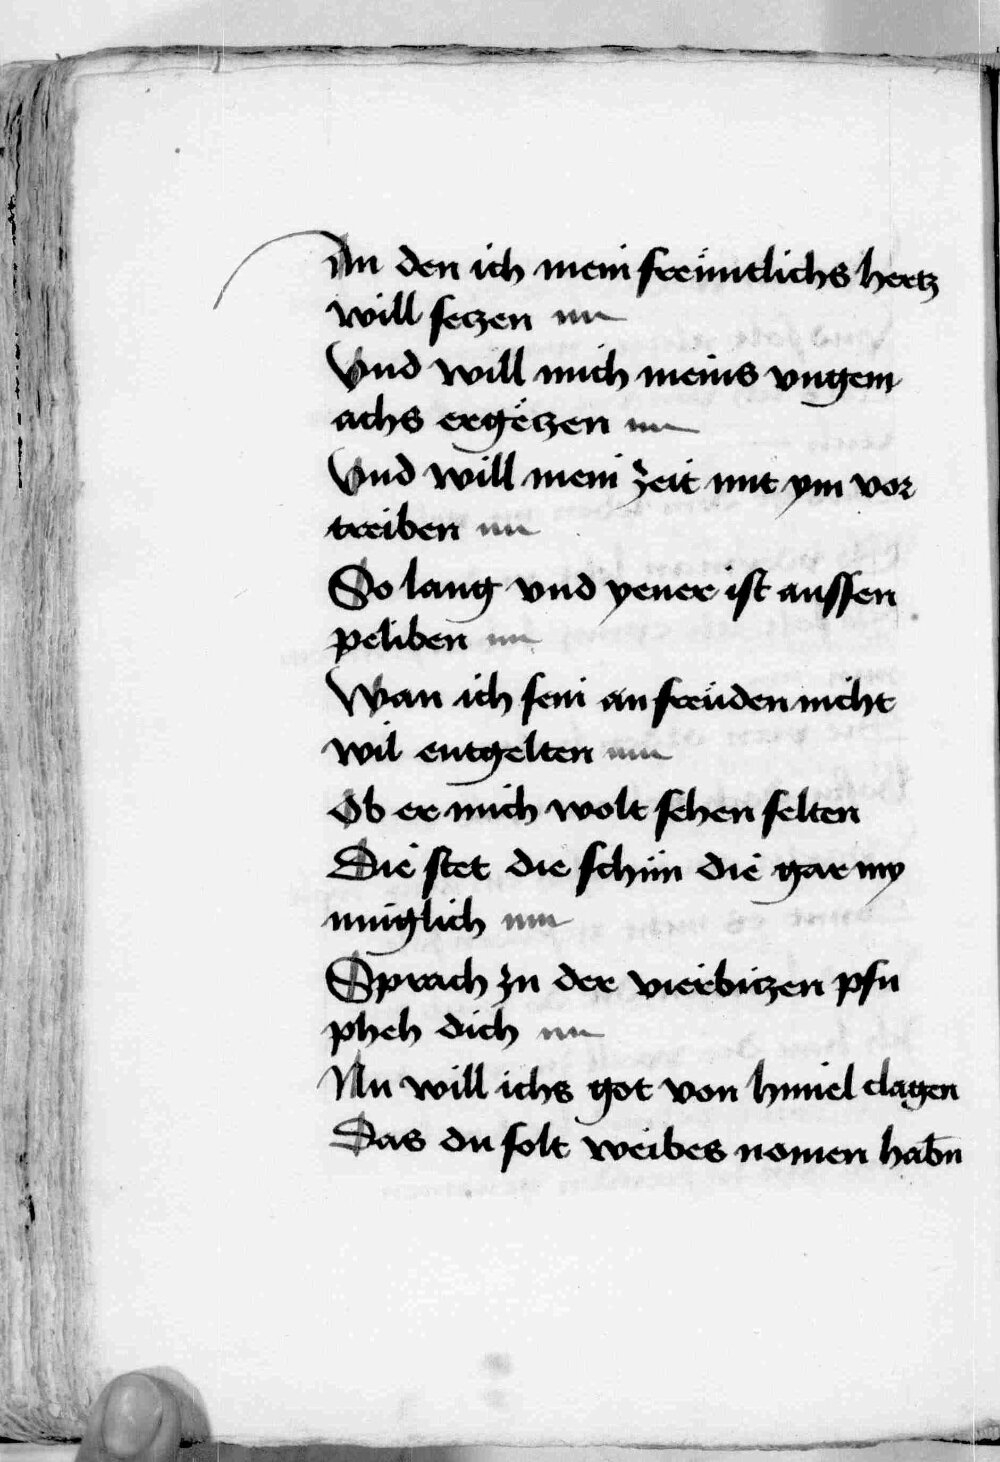 An den ich mein freüntlichs hertz
will seczen
Vnd will mich meins vngem
achs ergeczen
Vnd will mein zeit mit ym vor
treiben
So lang vnd yener ist aussen
peliben
Wan ich sein an freüden nicht
wil entgelten
Ob er mich wolt sehen selten
Die stet die schün die gar my
nniglich
Sprach zu der vierbiczen pfu
pheh dich
Nu will ichs got von himel clagen
Das du solt weibes nomen habn